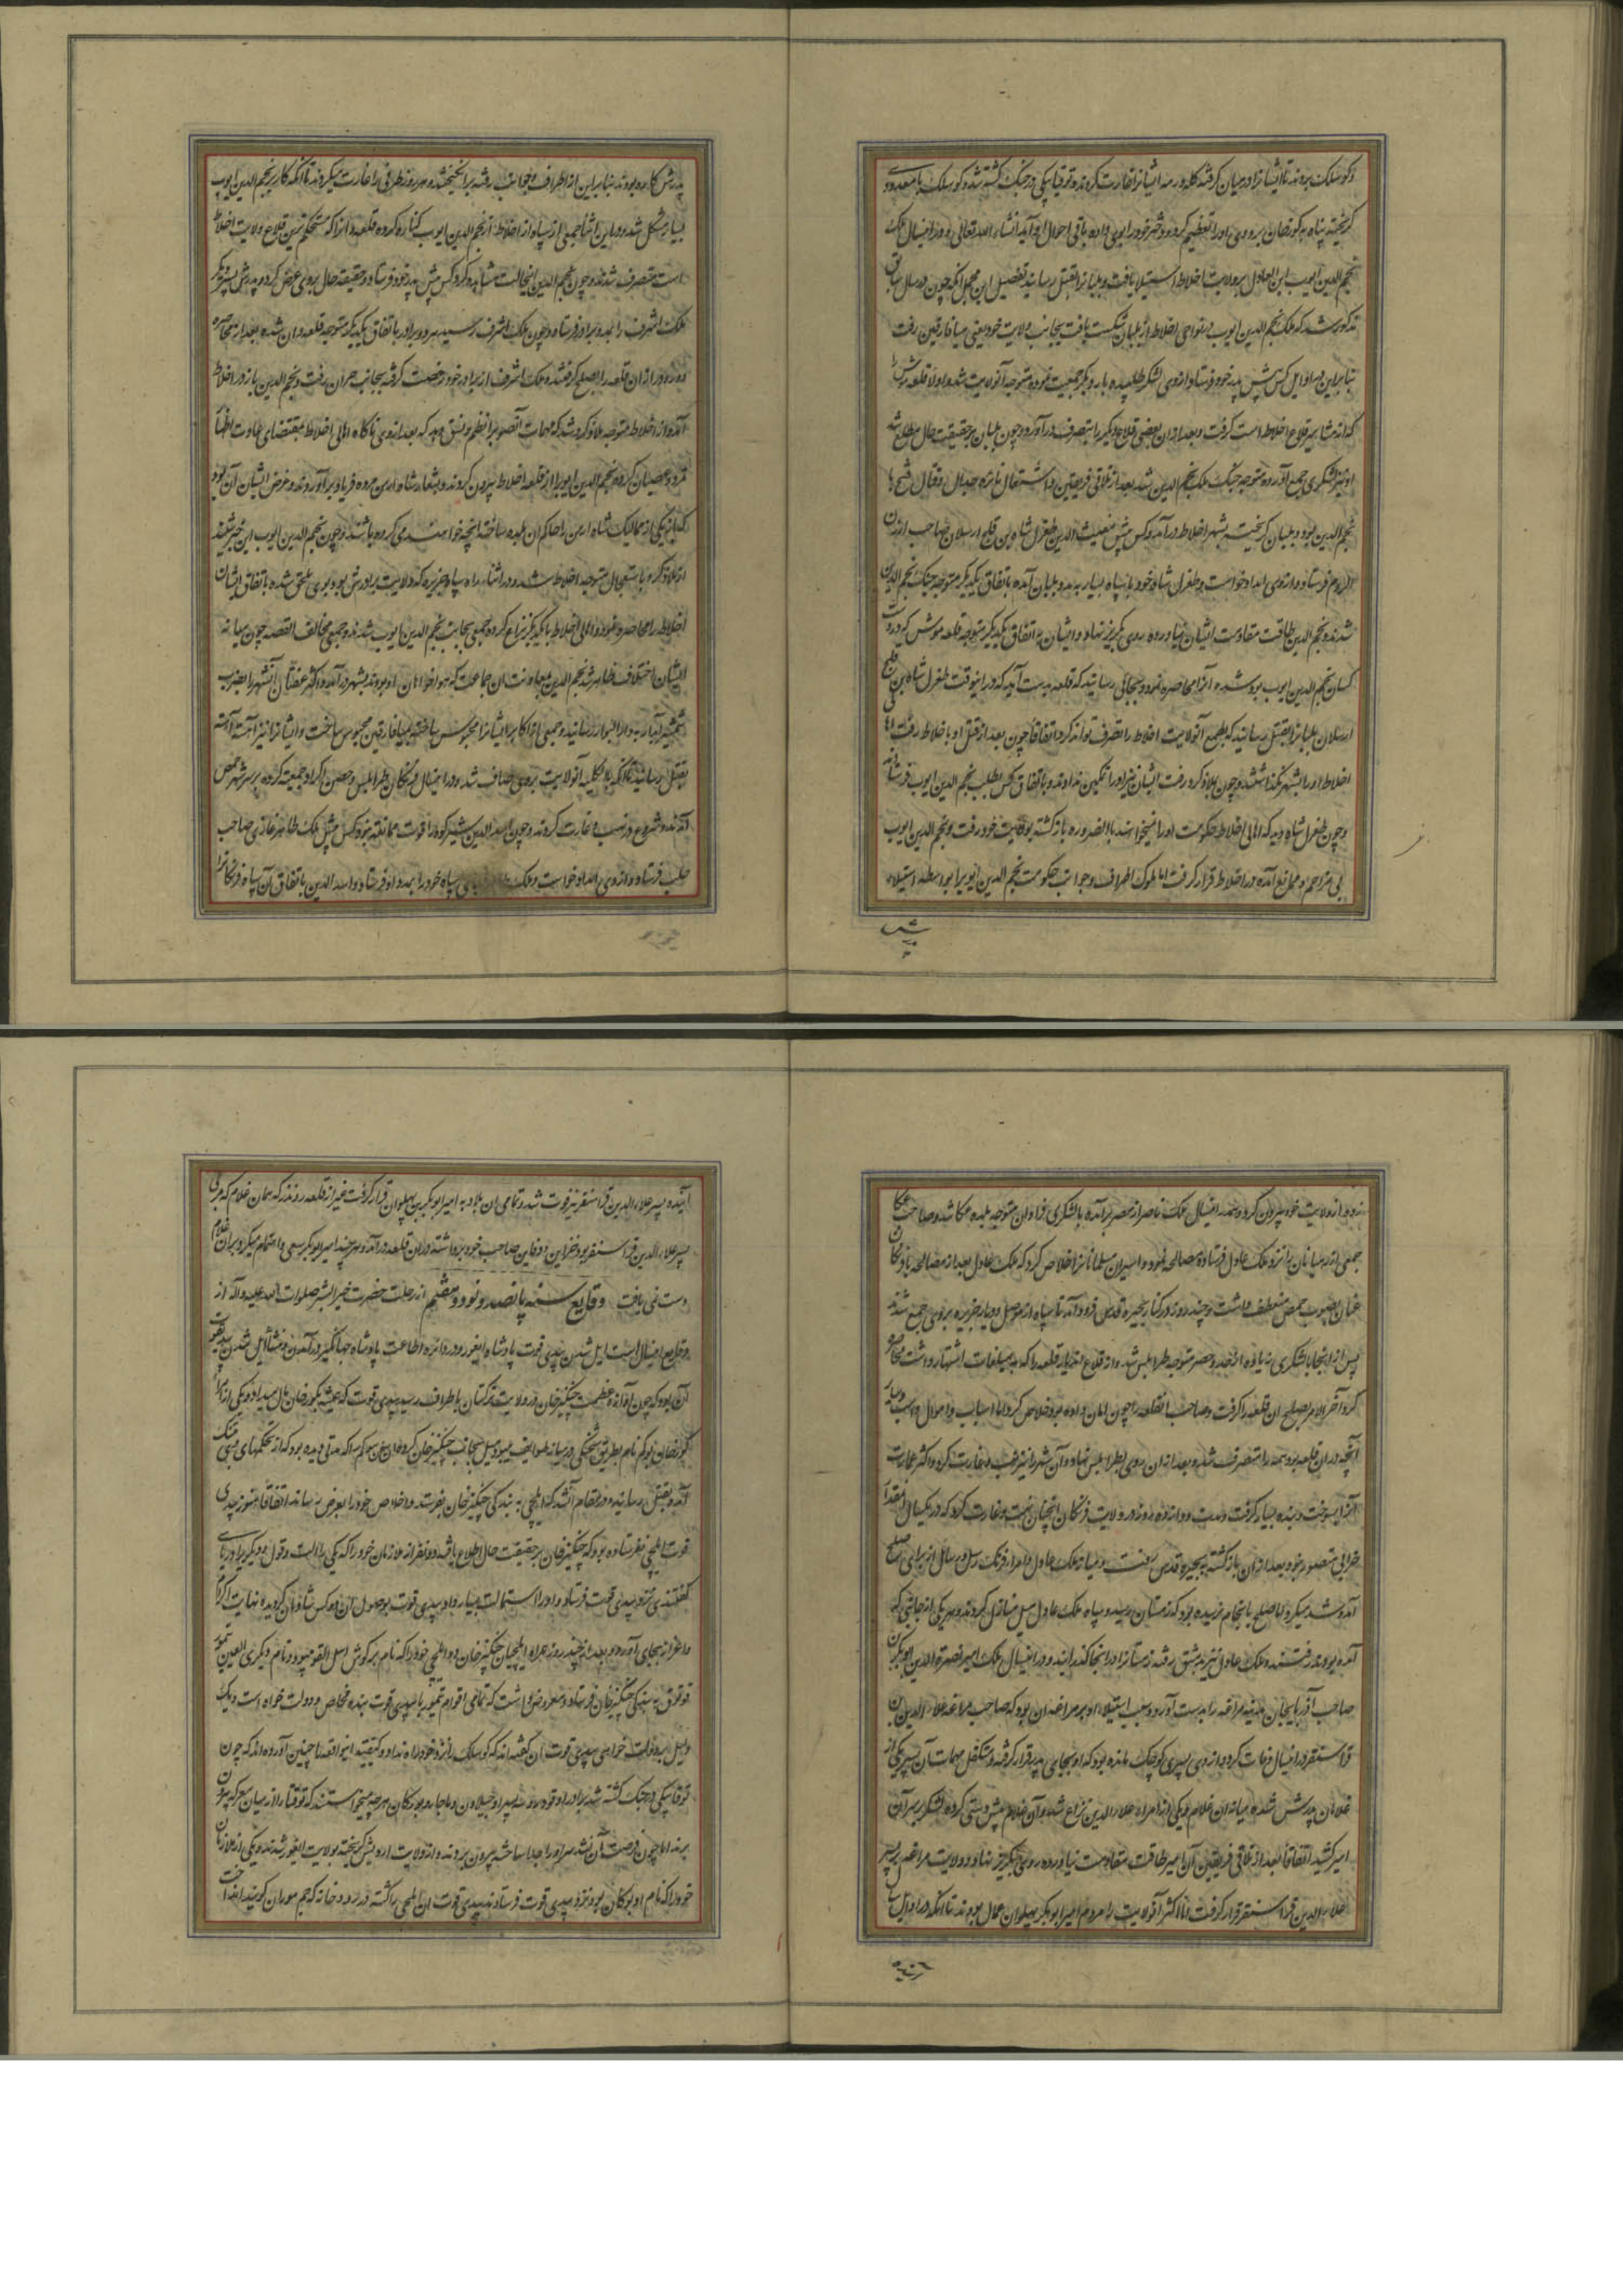 و کوشلک بروند تا ایشانرا در میان گرفتند کله و رمه ایشانرا غارت کردند و توقیابیکی در جنگ کشته شد و کوشلک با معدودی
گریخته پناه به گورخان برد و وی او را تعظیم کرده و دختر خود را بوی داده باقی احوال او آید انشاء الله تعالی و در این سال ملک
نجم الدین ایوب ابن العادل بر ولایت اخلاط استیلا یافت و بلبانرا بقتل رسانید تفصیل این مجمل آنکه چون در سال سابق
مذکور شد که ملک نجم الدین ایوب در نواحی اخلاط از بلبان شکست یافت بجانب ولایت خود یعنی میافارقین رفت
بنابراین در اوایل کس پیش پدر خود فرستاد و از وی لشکر طلبیده بار دیگر جمعیت نموده متوجه آنولایت شد و اولا قلعه موش را
که از مشاهیر قلاع اخلاط است گرفت و بعد از ان بعضی قلاع دیگر را بتصرف درآورد و چون بلبان بر حقیقت حال مطلع شد
او نیز لشکری جمع آورده متوجه جنگ ملک نجم الدین شد بعد از تلاقی فریقین و اشتعال نایره جدال و قتال فتح با
نجم الدین بود و بلبان گریخته بشهر اخلاط درآمد و کس پیش مغیث الدین طغرل شاه بن قلج ارسلان صاحب ارزن
الروم فرستاد و از وی امداد خواست و طغرل شاه خود با سپاه بسیار به مدد بلبان آمده باتفاق یکدیگر متوجه جنگ نجم الدین
شدند و نجم الدین طاقت مقاومت ایشان نیاورده روی بگریز نهاد و ایشان به اتفاق یکدیگر متوجه قلعه موش که در دست
کسان نجم الدین ایوب بود شده آنرا محاصره نمود و بجائی رسانید که قلعه بدست آید که در اینوقت طغرل شاه بن قلج
ارسلان بلبانرا بقتل رسانید که بطمع آنولایت اخلاط را تصرف تواند کرد اتفاقا چون بعد از قتل او باخلاط رفت اهل
اخلاط او را بشهر نگذاشتند و چون بملازکرد رفت ایشان نیز او را تمکین ندادند و باتفاق کس بطلب نجم الدین ایوب فرستادند
و چون طغرل شاه دید که اهالی اخلاط حکومت او را نمیخواهند بالضروره بازگشته بولایت خود رفت و نجم الدین ایوب
بی مزاحم و ممانع آمده در اخلاط قرار گرفت اما ملوک اطراف و جوانب حکومت نجم الدین ایوبرا بواسطه استیلاء
پدرش کاره بودند بنابراین از اطراف و جوانب فتنه برانگیختند و هر روز طرفی را غارت میکردند تا آنکه کار بر نجم الدین ایوب
بسیار مشکل شد و در این اثنا جمعی از سپاه از اخلاط از نجم الدین ایوب کناره کرده قلعه وان را که مستحکم ترین قلاع ولایت اخلاط
است متصرف شدند و چون نجم الدین اینحالت مشاهده کرد کس پیش پدر خود فرستاد و حقیقت حال بروی عرض کرد و پدرش پسر دیگر
ملک اشرف را بمدد برادر فرستاد و چون ملک اشرف رسید هر دو برادر باتفاق یکدیگر متوجه قلعه وان شده بعد از محاصره
آمده از اخلاط متوجه ملازکرد شد که مهمات آنصوب را نظم و نسق دهد که بعد از وی ناگاه اهالی اخلاط بمقتضای عادت اظهار
تمرد و عصیان کرده نجم الدین ایوبرا از قلعه اخلاط بیرون کردند و بشعار شاه ارمن مرده فریاد برآوردند و غرض ایشان آن بود
که باز یکی از ممالیک شاه ارمن را حاکم ان بلده ساخته آنچه خواهند می کرده باشند و چون نجم الدین ایوب این خبر شنید
از ملازکرد باستعجال متوجه اخلاط شد و در اثناء راه سپاه جزیره که ولایت برادرش بود بوی ملحق شده باتفاق ایشان
اخلاط را محاصره نمود و اهالی اخلاط با یکدیگر نزاع کرده جمعی بجانب نجم الدین ایوب شدند و جمعی مخالف القصه چون میانه
ایشان اختلاف ظاهر شد نجم الدین بمعاونت ان جماعت که هواخواهان او بودند بشهر درآمد و اکثر عصاة آنشهر را بضرب
شمشیر آبدار به دار البوار رسانیده و جمعی از اکابر ایشانرا محبوس ساخته بمیافارقین محبوس ساخت و ایشانرا نیز آهسته آهسته
بقتل رسانید تا آنکه بالکلیه آنولایت بروی صاف شد و در اینسال فرنگان طرابلس و حصن اکراد جمعیت کرده بر سر شهر حمص
آمدند و شروع در نهب و غارت کردند و چون اسد الدین شیرکوه را قوت ممانعت نبود کس پیش ملک ظاهر غازی صاحب
حلب فرستاد و از وی امداد خواست و ملک سپاه خود را بمدد او فرستاد و اسد الدین باتفاق آن سپاه فرنگانرا
از ولایت خود بیرون کرد و هم در اینسال ملک ناصر از مصر برآمده با لشکری فراوان متوجه بلده عکا شد و صاحب عکا
جمعی از رهبانان را نزد ملک عادل فرستاده مصالحه نمود و اسیران مسلمانانرا خلاص کرد که ملک عادل بعد از مصالحه با فرنگان
عنان بصوب حمص منعطف داشت و چند روز در کنار بحیره قدس فرود آمد تا سپاه از موصل و دیار جزیره بروی جمع شدند
پس از انجا با لشکری زیاده از حد و حصر متوجه طرابلس شد و از قلاع اندیار قلعه را که اشتهار داشت محاصره
کرد آخر الامر بصلح ان قلعه را گرفت و صاحب انقلعه را چون امان داده بود خلاص کرد اما اسباب و اموال و اسب و سایر
آنچه در ان قلعه بود همه را متصرف شد و بعد از ان روی بطرابلس نهاد و آن شهر را نیز نهب و غارت کرد و اکثر عمارت
آنرا بسوخت و بنده بسیار گرفت و مدت دوازده روز در ولایت فرنگان آنچنان نهب و غارت کرد که در یکسال آنمقدار
خرابی متصور نبود بعد از ان بازگشته به بحیره قدس رفت و میانه ملک عادل و امراء فرنگ رسل و رسایل از برای صلح
آمد و شد میکرد اما صلح بانجام نرسیده بود که زمستان رسید و سپاه ملک عادل میل منازل کردند و هر یکی از جائی که
آمده بودند رفتند و ملک عادل نیز بدمشق رفته زمستانرا در انجا گذرانید و در اینسال ملک امیر نصرة الدین ابوبکر بن
صاحب آذربایجان مدینه مراغه را بدست آورد و سبب استیلاء او بر مراغه ان بود که صاحب مراغه علاء الدین بن
قراسنقر در اینسال وفات کرد و از وی پسری کوچک مانده بود که او بجای پدر قرار گرفته و متکفل مهمات آن پسر یکی از
غلامان پدرش شده میانه ان غلام و یکی از امراء علاء الدین نزاع شد و آن غلام پیش دستی کرده لشکر بر سر آن
امیر کشید اتفاقا بعد از تلاقی فریقین آن امیر طاقت مقاومت نیاورده روی بگریز نهاد و ولایت مراغه بر پسر
علاء الدین قراسنقر قرار گرفت اما اکثر آنولایت را مردم امیر ابوبکر بهلوان عمال بودند تا آنکه در اوایل سال
آینده
آینده پسر علاء الدین قراسنقر نیز فوت شد و تمامی ان بلاد به امیر ابوبکر بن بهلوان قرار گرفت غیر از قلعه روند که همان غلام که مربی
پسر علاء الدین قراسنقر بود خزاین و دفاین صاحب خود برداشته در ان قلعه درآمد و هر چند امیر ابوبکر سعی و اهتمام میکرد بر ان غلام
دست نمی یافت وقایع سنه پانصد و نود و هفتم از رحلت حضرت خیر البشر صلوات الله علیه و آله از
وقایع اینسال است ایل شدن یدی قوت پادشاه ایغور و در دایره اطاعت پادشاه جهانگیر درآمدن و منشأ ایل شدن یدی قوت
آن بود که چون آوازه عظمت چنگیز خان در ولایت ترکستان باطراف رسید یدی قوت که همیشه بگورخان مال میداد و یکی از امراء
آمده بقتل رسانیده در مقام آن شد که ایلچی به بندگی چنگیز خان بفرستد و اخلاص خود را بعرض رساند اتفاقا هنوز یدی
قوت ایلچی نفرستاده بود که چنگیز خان بر حقیقت حال اطلاع یافته دو نفر از ملازمان خود را
گفتندی نزد یدی قوت فرستاد و او را استمالت بسیار داد و یدی قوت بوصول ان دو کس شادمان گردیده نهایت اکرام
و اعزاز بجای آورد و بعد از چند روز همراه ایلچیان چنگیز خان دو ایلچی خود را
به بندگی چنگیز خان فرستاد و معروض داشت که تمامی اقوام ایغور با یدی قوت بنده مخلص و دولت خواه است
توقتابیکی در جنگ کشته شد
برند اما چون فرصت آن نشد سر او را جدا ساخته بیرون بردند و از ولایت اردیش گریخته بولایت ایغور شدند و یکی از ملازمان
خود را که نام او بوکان بود نزد یدی قوت فرستادند یدی قوت ان ایلچی را کشته در رودخانه که جم موران گویند انداخت